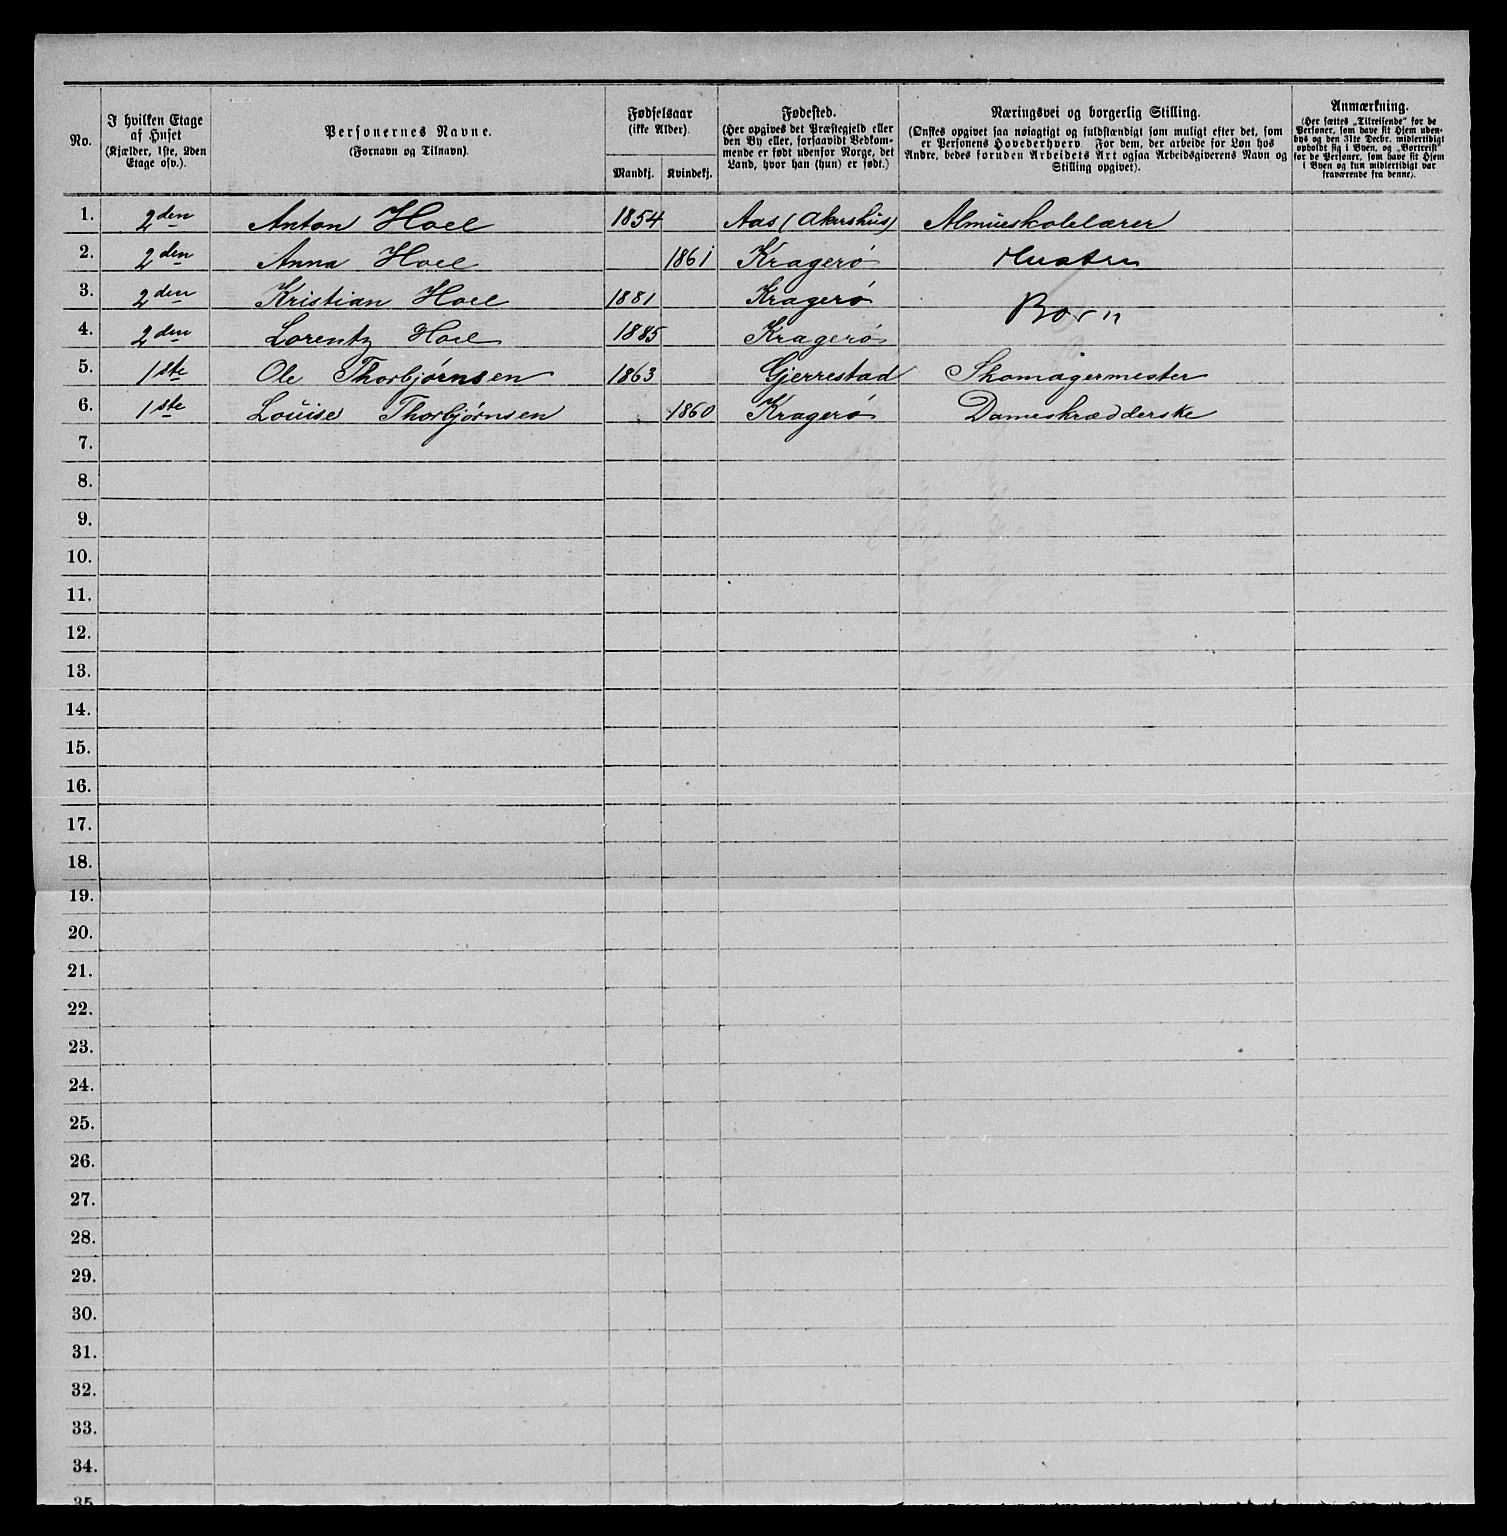 No.
I hvilken Etage
af Huset
(Kjælder, 1ste, 2den
Etage osv.).
Personernes Navne.
(Fornavn og Tilnavn).
Fødselsaar
(ikke Alder).
Mandkj. Kvindekj.
Fødested.
(Her opgives det Præstegjeld eller
den By eller, forsaavidt Vedkom-
mende er født udenfor Norge, det
Land, hvor han (hun) er født.)
Næringsvei og borgerlig Stilling.
(Ønskes opgivet saa nøiagtigt og fuldstændigt som muligt efter det, som
er Personens Hovederhverv. For dem, der arbeide for Løn hos
Andre, bedes foruden Arbeidets Art ogsaa Arbeidsgiverens Navn og
Stilling opgivet).
Anmærkning.
(Her sættes „Tilreisende“ for de
Personer, som have sit Hjem uden-
bys og den 31te Decbr. midlertidigt
opholdt sig i Byen, og „Bortreist“
for de Personer, som have sit Hjem
i Byen og kun midlertidigt var
fraværende fra denne).
1. 2den Anton Hoel 1854 Aas (Akershus) Almueskolelærer
2. 2den Anna Hoel 1861 Kragerø Hustru
3. 2den Kristian Hoel 1881 Kragerø
Børn
4. 2den Lorentz Hoel 1885 Kragerø
5. 1ste Ole Thorbjørnsen 1863 Gjerrestad Skomagermester
6. 1ste Louise Thorbjørnsen 1860 Kragerø Dameskrædderske
7.
8.
9.
10.
11.
12.
13.
14.
15.
16.
17.
18.
19.
20.
21.
22.
23.
24.
25.
26.
27.
28.
29.
30.
31.
32.
33.
34.
35